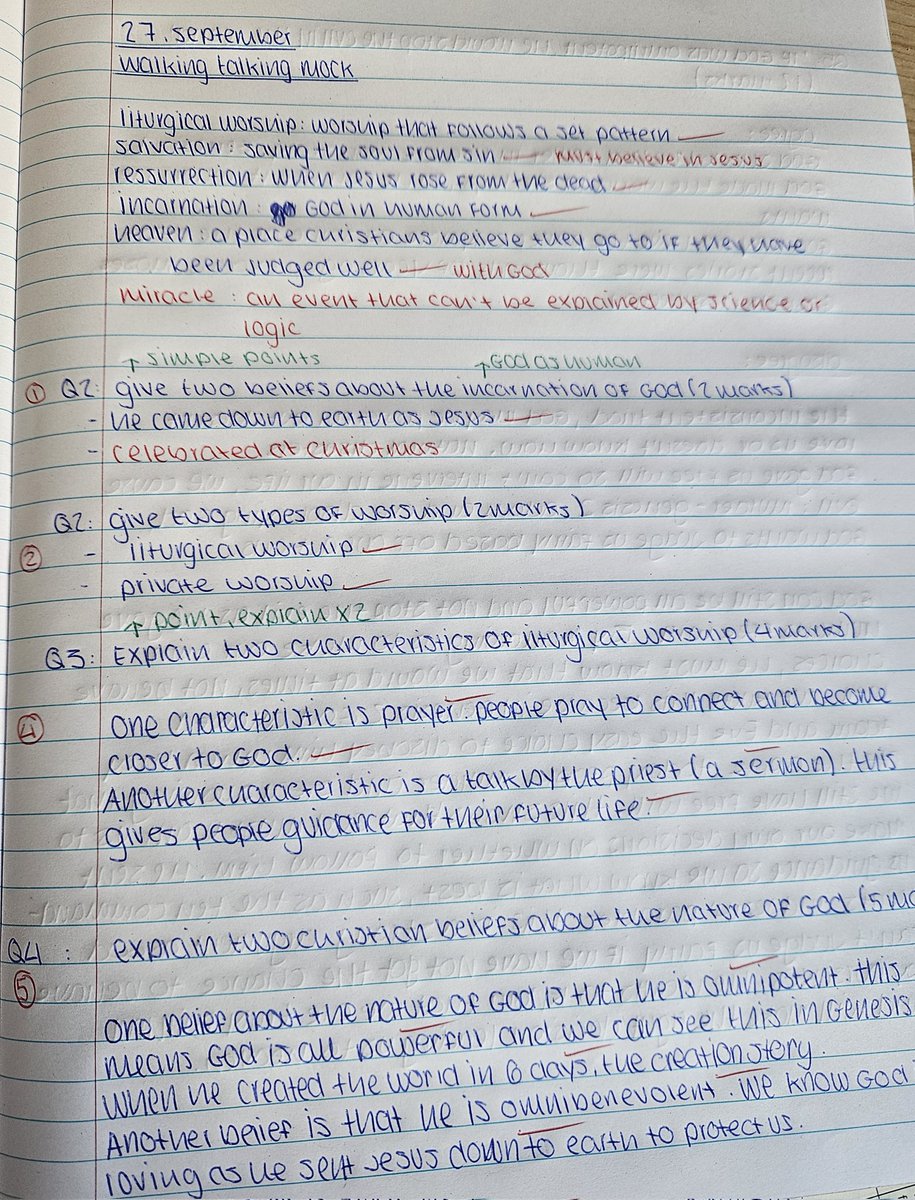 27. september
walking talking mock
liturgical worship: worship that follows a set pattern
salvation: saving the soul from sin must believe in Jesus
ressurrection: when Jesus rose from the dead
incarnation: God in human form
heaven: a place christians believe they go to if they have
been judged well with God
miracle: an event that can't be explained by science or
logic
↑ simple points ↑ God as human
① Q2: give two beliefs about the incarnation of God (2 marks)
- he came down to earth as Jesus
- celebrated at christmas
Q2: give two types of worship (2 marks)
② - liturgical worship
- private worship
↑ point, explain x2
Q3: Explain two characteristics of liturgical worship (4 marks)
④ One characteristic is prayer. people pray to connect and become
closer to God.
Another characteristic is a talk by the priest (a sermon). this
gives people guidance for their future life.
Q4: explain two christian beliefs about the nature of God (5 ma
⑤ One belief about the nature of God is that he is omnipotent. this
means God is all powerful and we can see this in Genesis
when he created the world in 6 days, the creation story.
Another belief is that he is omnibenevolent. we know God
loving as he sent Jesus down to earth to protect us.